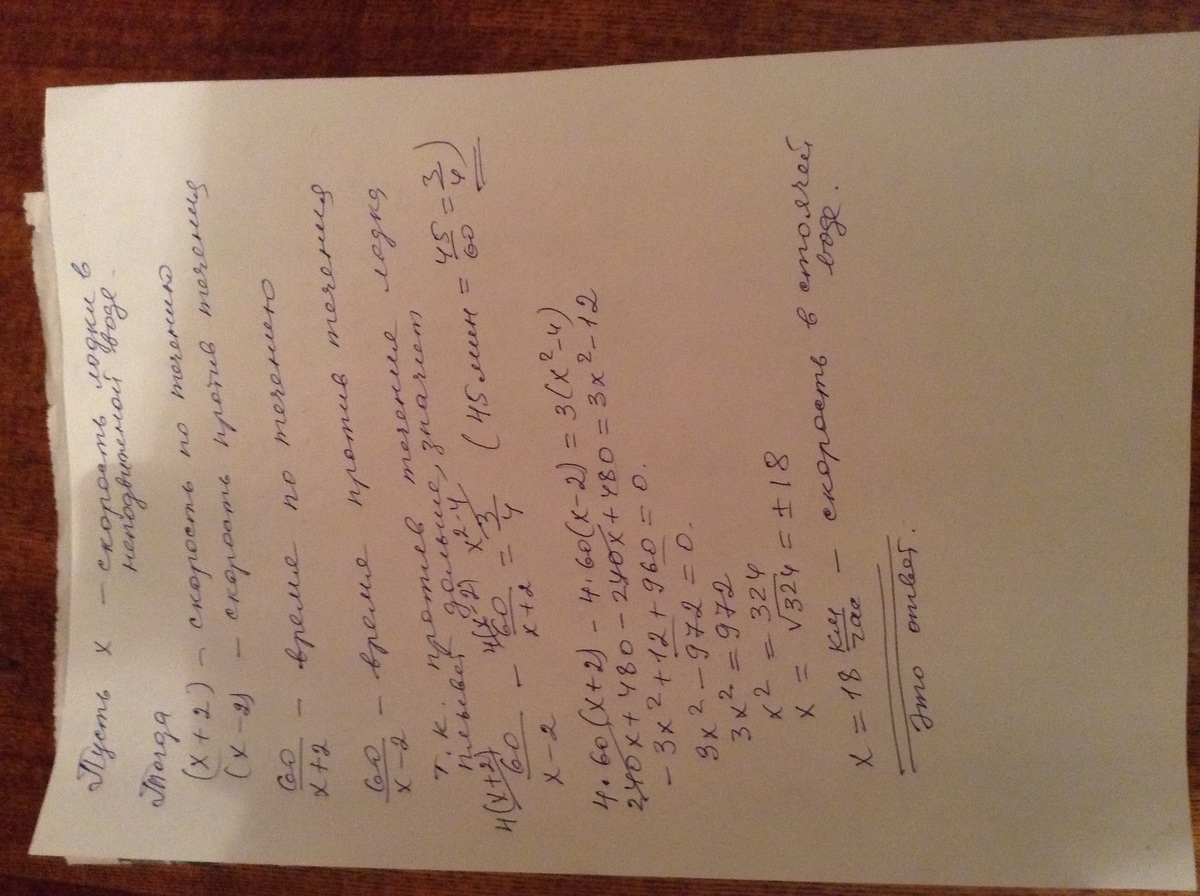 Пусть x – скорость лодки в
неподвижной воде.
Тогда
(x+2) – скорость по течению
(x-2) – скорость против течения
60/(x+2) – время по течению
60/(x-2) – время против течения
т.к. против течения лодка
плывет дольше, значит
4(x+2) 4(x-2) x²-4
60/(x-2) - 60/(x+2) = 3/4 (45 мин = 45/60 = 3/4)
4·60(x+2) - 4·60(x-2) = 3(x²-4)
240x + 480 - 240x + 480 = 3x² - 12
-3x² + 12 + 960 = 0.
3x² - 972 = 0.
3x² = 972
x² = 324
x = √324 = ±18
x = 18 км/час – скорость в стоячей
воде.
Это ответ.